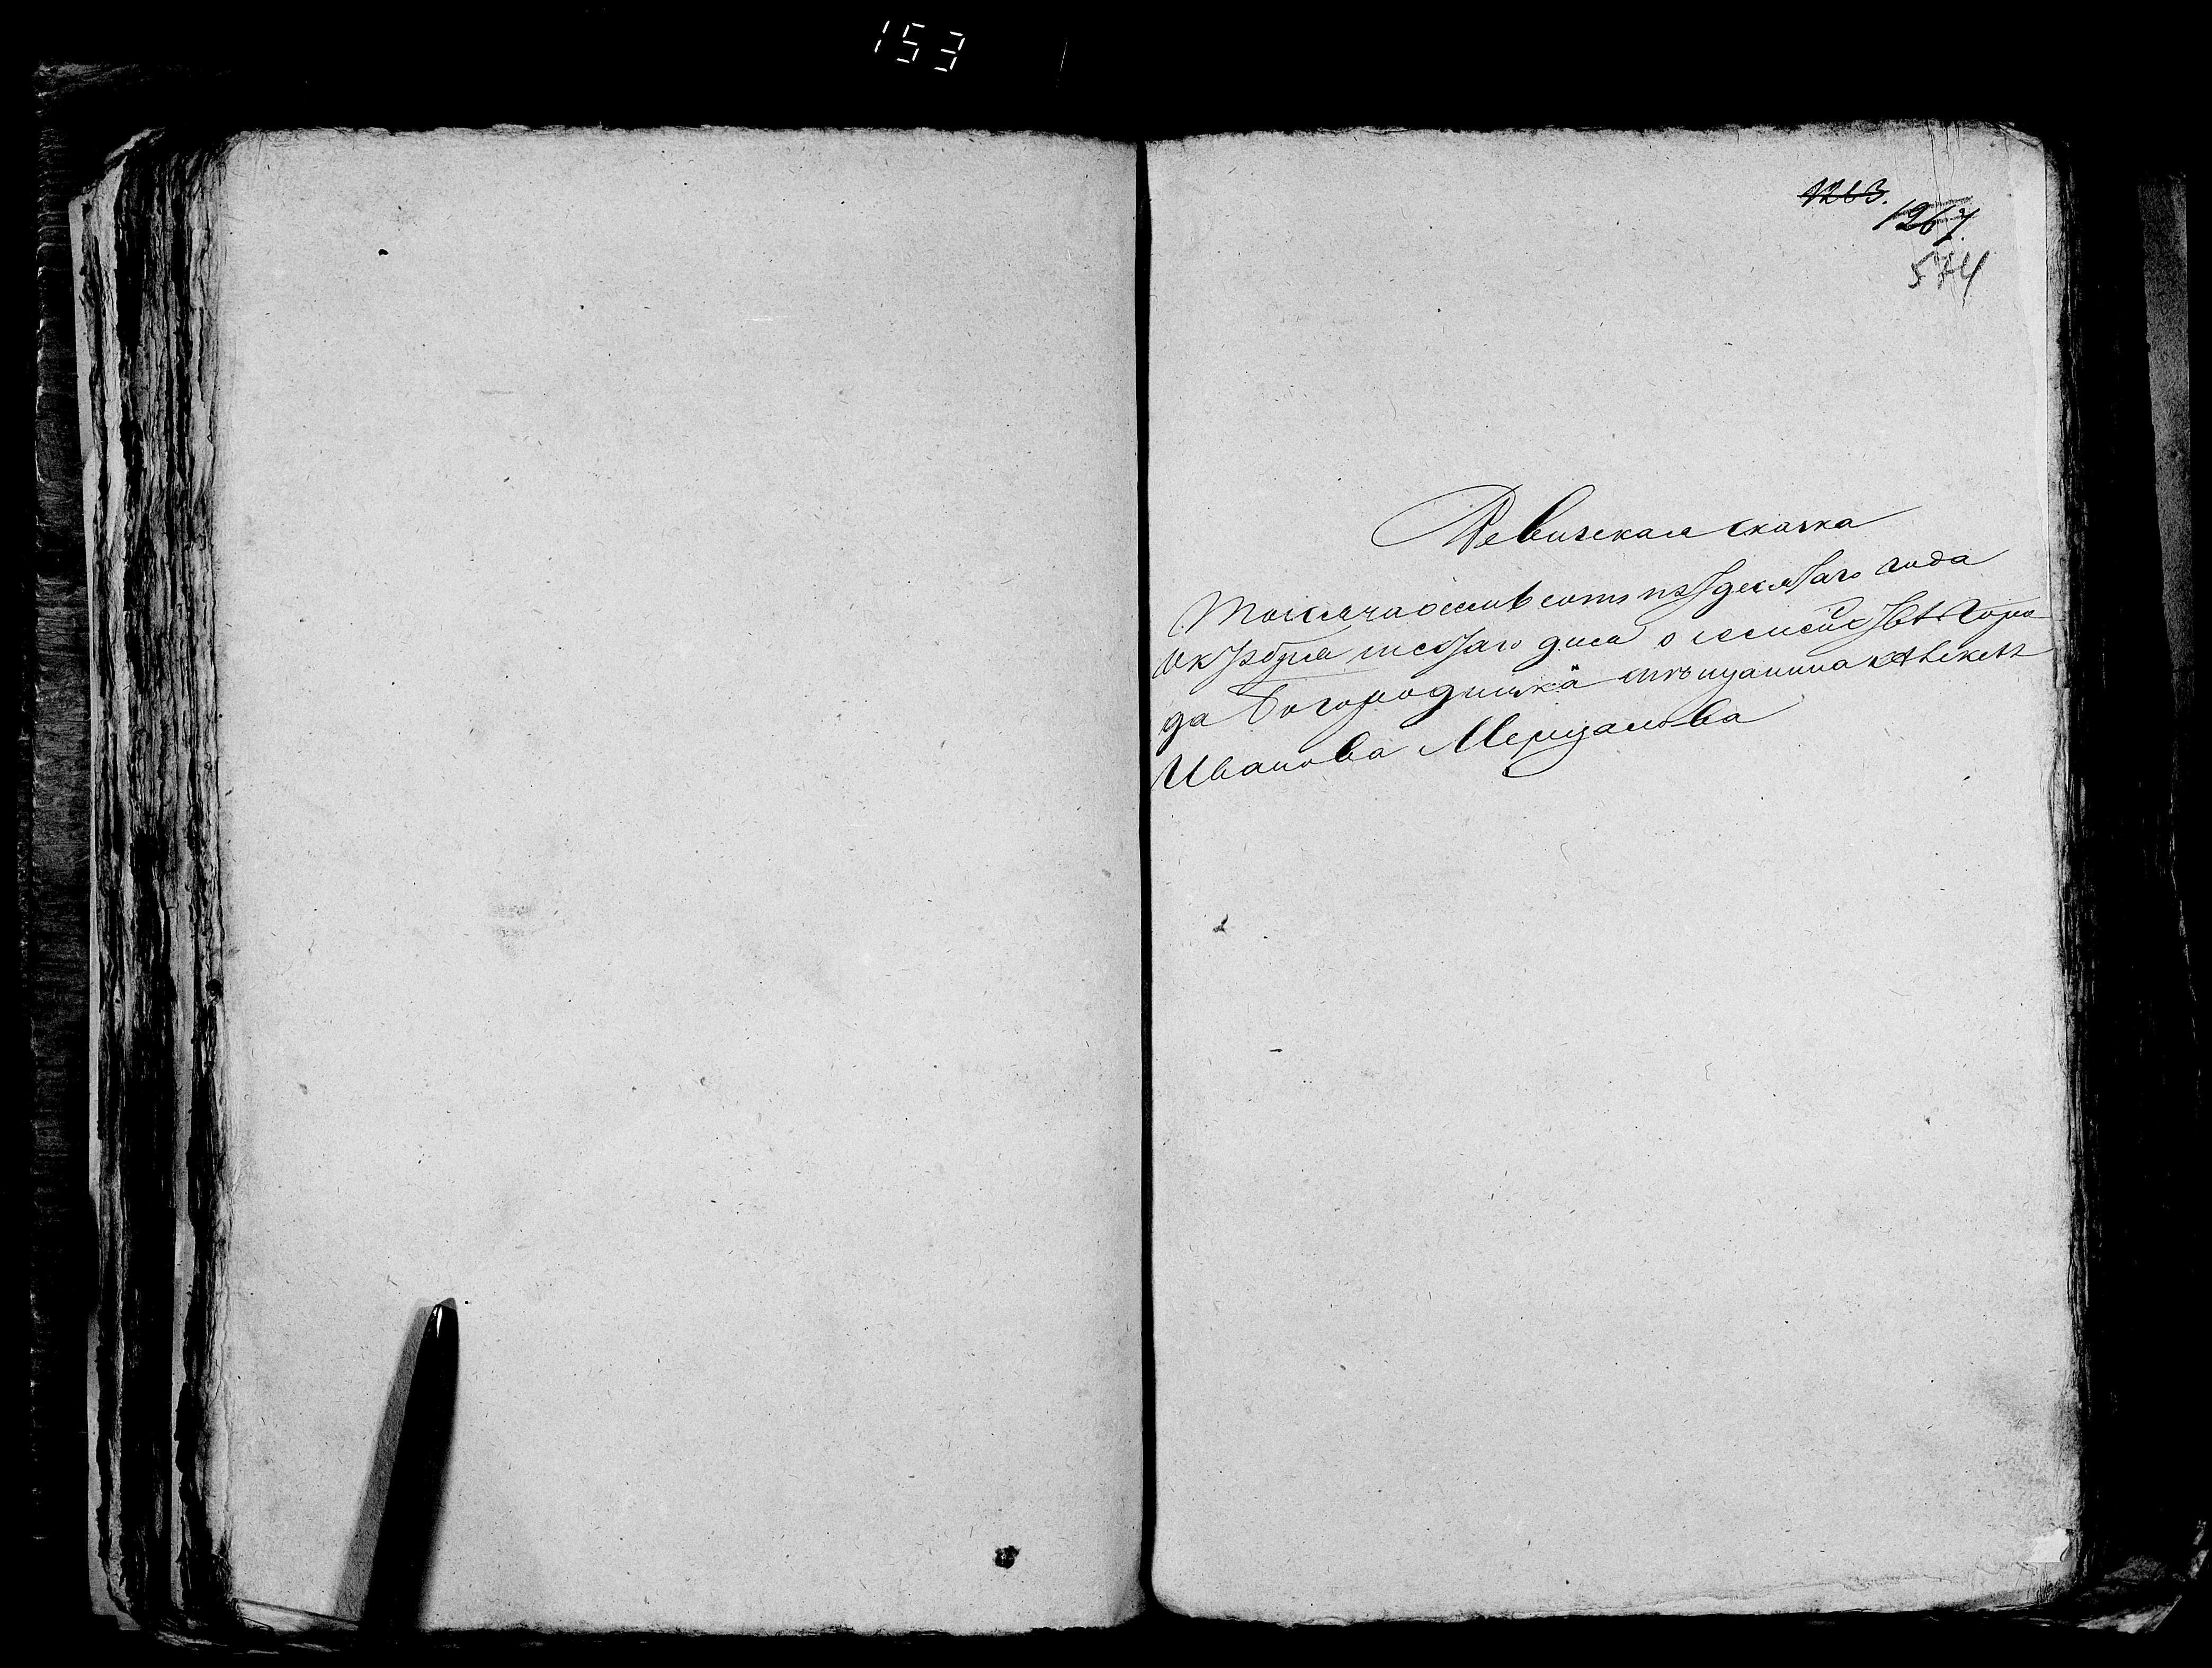 153
1263.
1267.
574
Ревизская скаска
Тысяча осемь сотъ пядесятаго года
Октября шестаго дня о семействе Горо
да Богородицка мещанина Алексея
Иванова Мерцалова